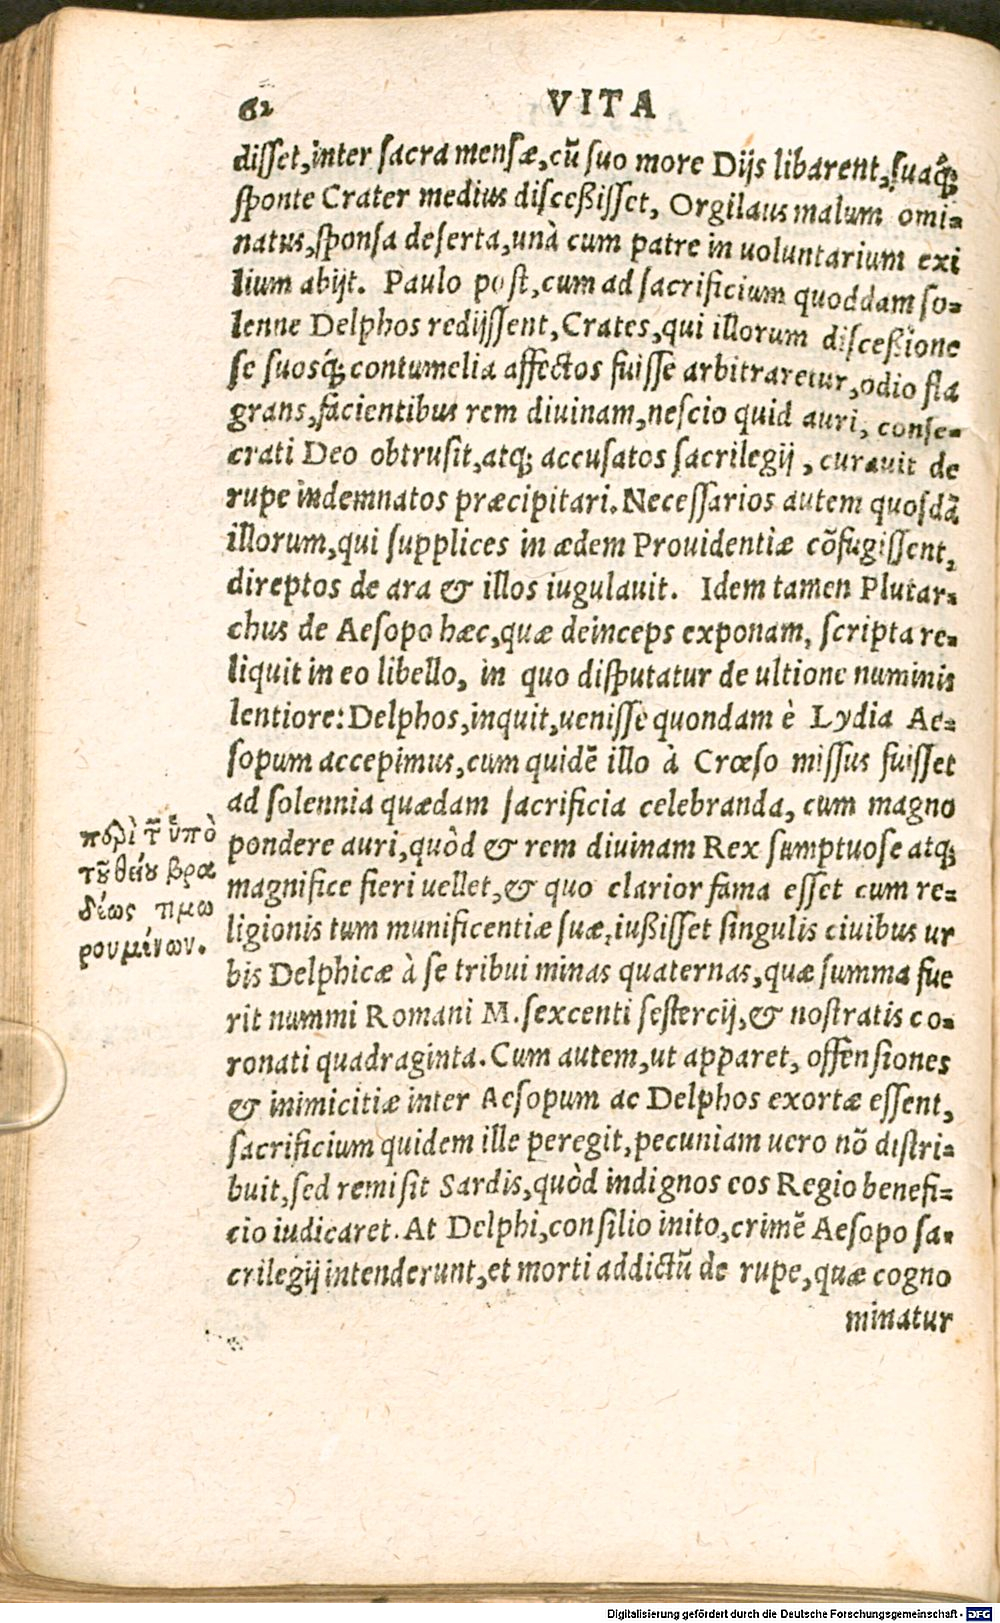 62 VITA
disset, inter sacra mensæ, cũ suo more Dijs libarent, suaq́;
sponte Crater medius disceßisset, Orgilaus malum omi-
natus, sponsa deserta, unà cum patre in uoluntarium exi
lium abijt. Paulo post, cum ad sacrificium quoddam so-
lenne Delphos redijssent, Crates, qui illorum disceßione
se suosq́; contumelia affectos fuisse arbitraretur, odio fla
grans, facientibus rem diuinam, nescio quid auri, conse-
crati Deo obtrusit, atq; accusatos sacrilegij, curauit de
rupe indemnatos præcipitari. Necessarios autem quosdã
illorum, qui supplices in ædem Prouidentiæ cõfugissent,
direptos de ara & illos iugulauit. Idem tamen Plutar-
chus de Aesopo hæc, quæ deinceps exponam, scripta re-
liquit in eo libello, in quo disputatur de ultione numinis
lentiore: Delphos, inquit, uenisse quondam è Lydia Ae-
sopum accepimus, cum quidẽ illo à Crœso missus fuisset
ad solennia quædam sacrificia celebranda, cum magno
pondere auri, quòd & rem diuinam Rex sumptuose atq;
magnifice fieri uellet, & quo clarior fama esset cum re-
ligionis tum munificentiæ suæ, iußisset singulis ciuibus ur
bis Delphicæ à se tribui minas quaternas, quæ summa fue
rit nummi Romani M. sexcenti sestercij, & nostratis co-
ronati quadraginta. Cum autem, ut apparet, offensiones
& inimicitiæ inter Aesopum ac Delphos exortæ essent,
sacrificium quidem ille peregit, pecuniam uero nõ distri-
buit, sed remisit Sardis, quòd indignos eos Regio benefi-
cio iudicaret. At Delphi, consilio inito, crimẽ Aesopo sa-
crilegij intenderunt, et morti addictũ de rupe, quæ cogno
minatur
περὶ τ͂ ὑπὸ
τοῦ θείου βρα
δέως τιμω
ρουμένων.
Digitalisierung gefördert durch die Deutsche Forschungsgemeinschaft - DFG